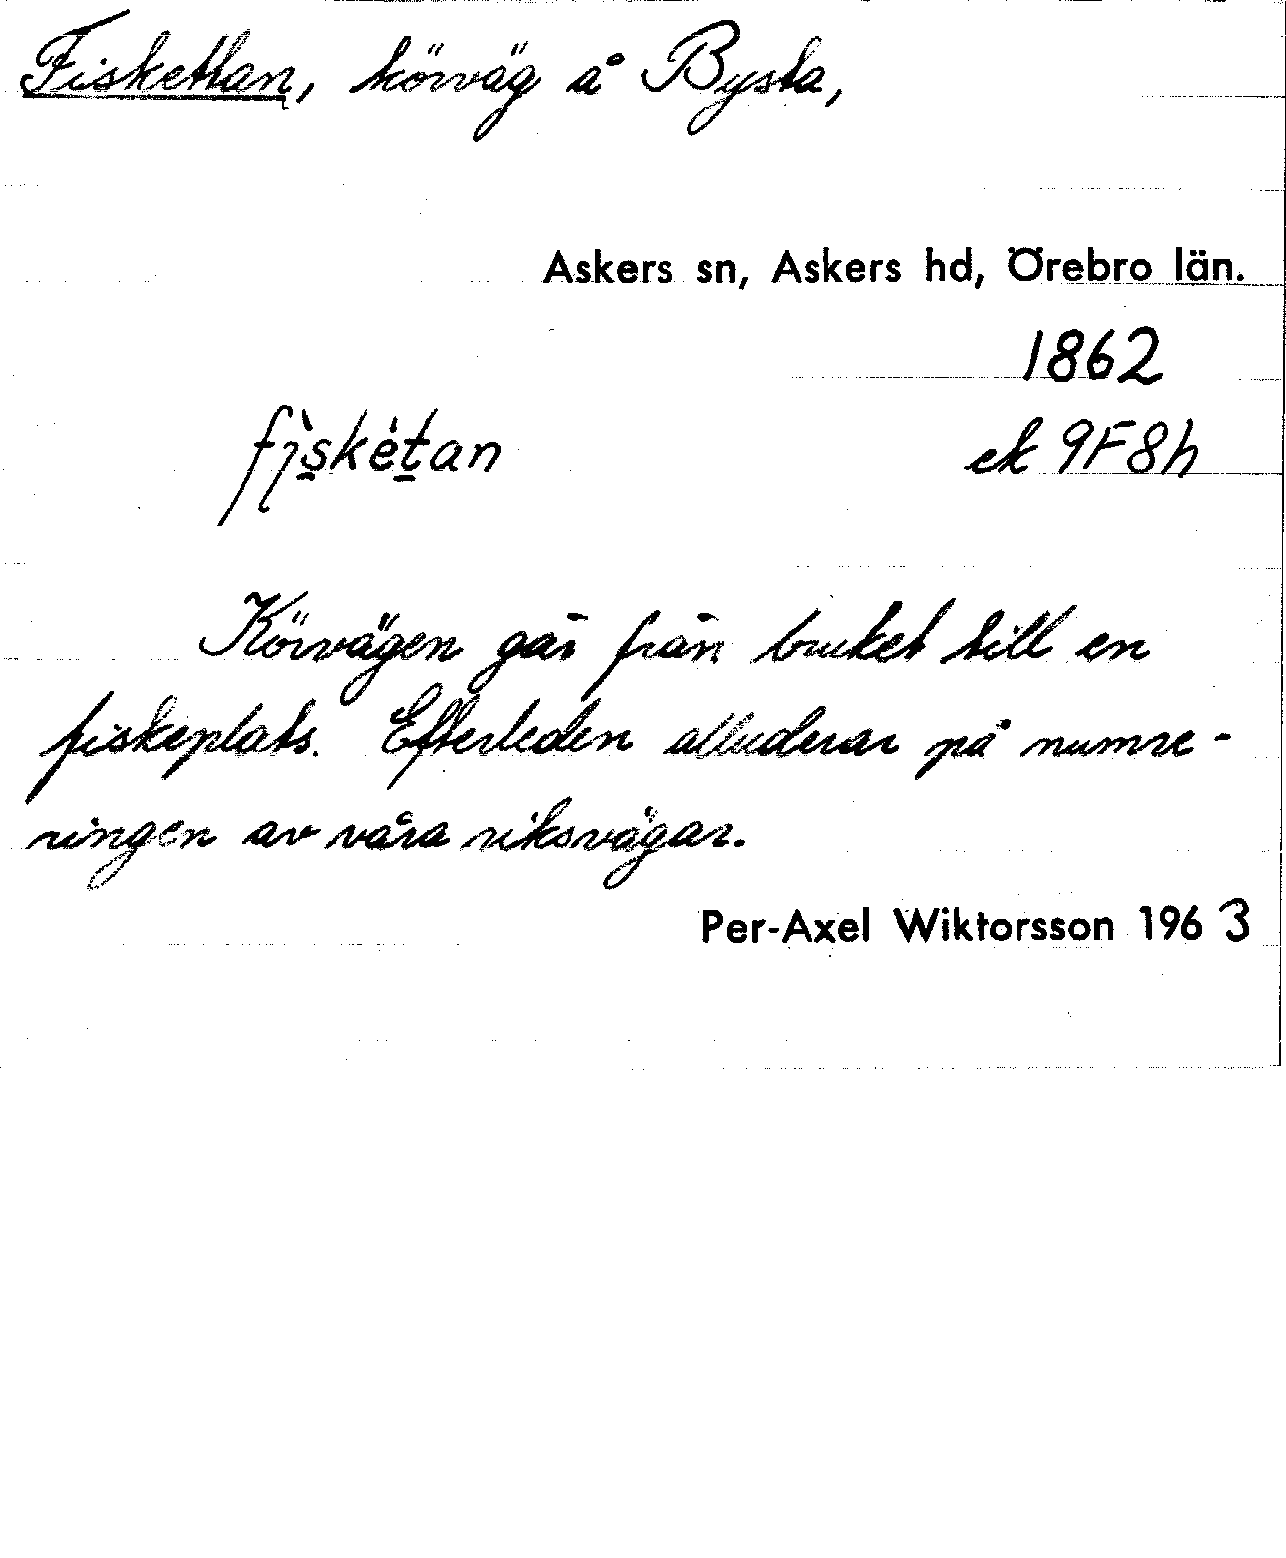 Fiskettan, körväg å Bysta,
Askers sn, Askers hd, Örebro län.
1862
fiskètan
ek 9F8h
Körvägen går från bruket till en
fiskeplats. Efterleden alluderar på numre-
ringen av våra riksvägar.
Per-Axel Wiktorsson 1963